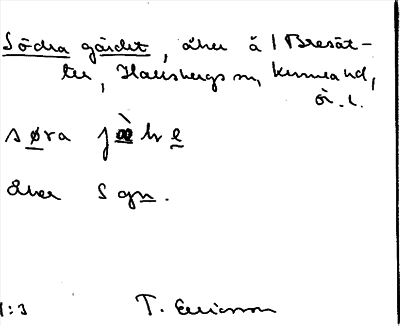 Södra gärdet, åker å 1 Bresät-
ter, Hallsbergs sn, Kumla hd,
ör. l.
søra jæ̀ḷe
åker S gn.
1:3 T. Ericsson